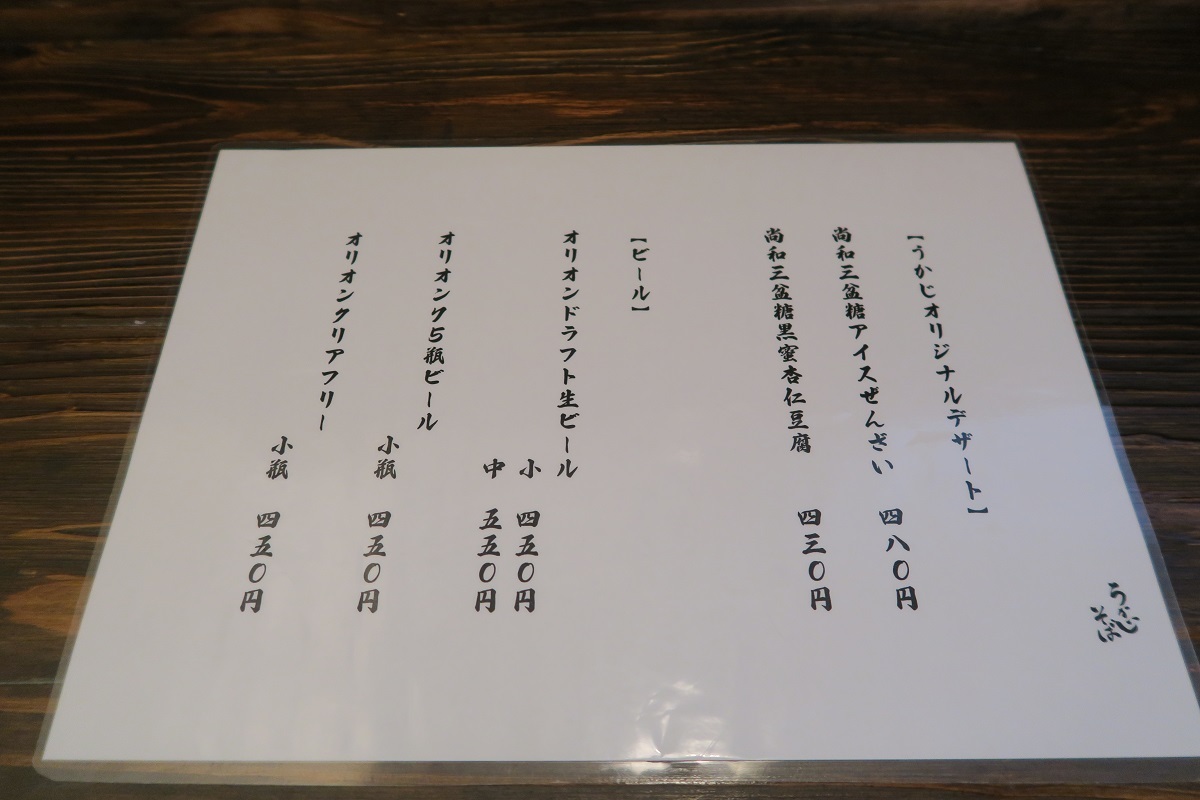 【うかじオリジナルデザート】
尚和三盆糖アイスぜんざい 四八〇円
尚和三盆糖黒蜜杏仁豆腐 四三〇円
【ビール】
オリオンドラフト生ビール
小 四五〇円
中 五五〇円
オリオンク5瓶ビール
小瓶 四五〇円
オリオンクリアフリー
小瓶 四五〇円
うかじ
そば